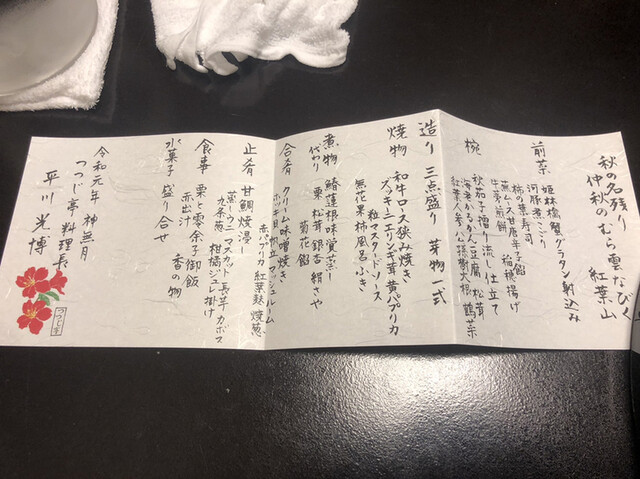 秋の名残り
仲秋のむら雲なびく
紅葉山
前菜
姫林檎蟹グラタン射込み
河豚煮こごり
柿の葉寿司
蒸しムース甘唐辛子餡
稲穂揚げ
牛蒡煎餅
椀
秋茄子摺り流し仕立て
海老かるかん豆腐 松茸
紅葉人参 大根 鶴菜
造り 三点盛り 芽物一式
焼物 和牛ロース狭み焼き
ズッキーニ エリンギ茸 黄パプリカ
粒マスタードソース
無花果柿風呂ふき
煮物
代わり
鰆蓮根味覚蒸し
栗 松茸 銀杏 絹さや
菊花餡
合肴 クリーム味噌焼き
ホッキ貝 帆立 マッシュルーム
赤パプリカ 紅葉麩 焼葱
止肴 甘鯛焼浸し
蒸しウニ マスカット 長芋 カボス
九条葱 柑橘ジュレ掛け
食事 栗と零余子御飯
赤出汁 香の物
水菓子 盛り合せ
令和元年 神無月
つつじ亭 料理長
平川 光博
つつじ亭